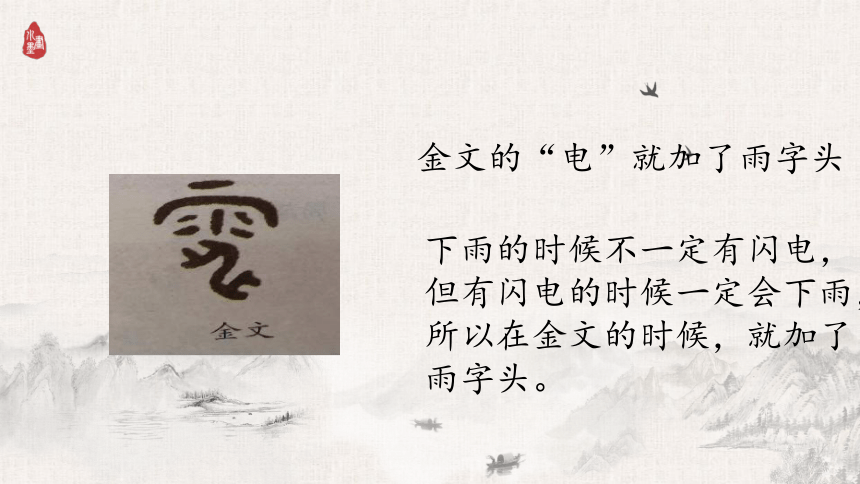 水墨書
金文的“电”就加了雨字头
下雨的时候不一定有闪电，
但有闪电的时候一定会下雨，
所以在金文的时候，就加了
雨字头。
金文